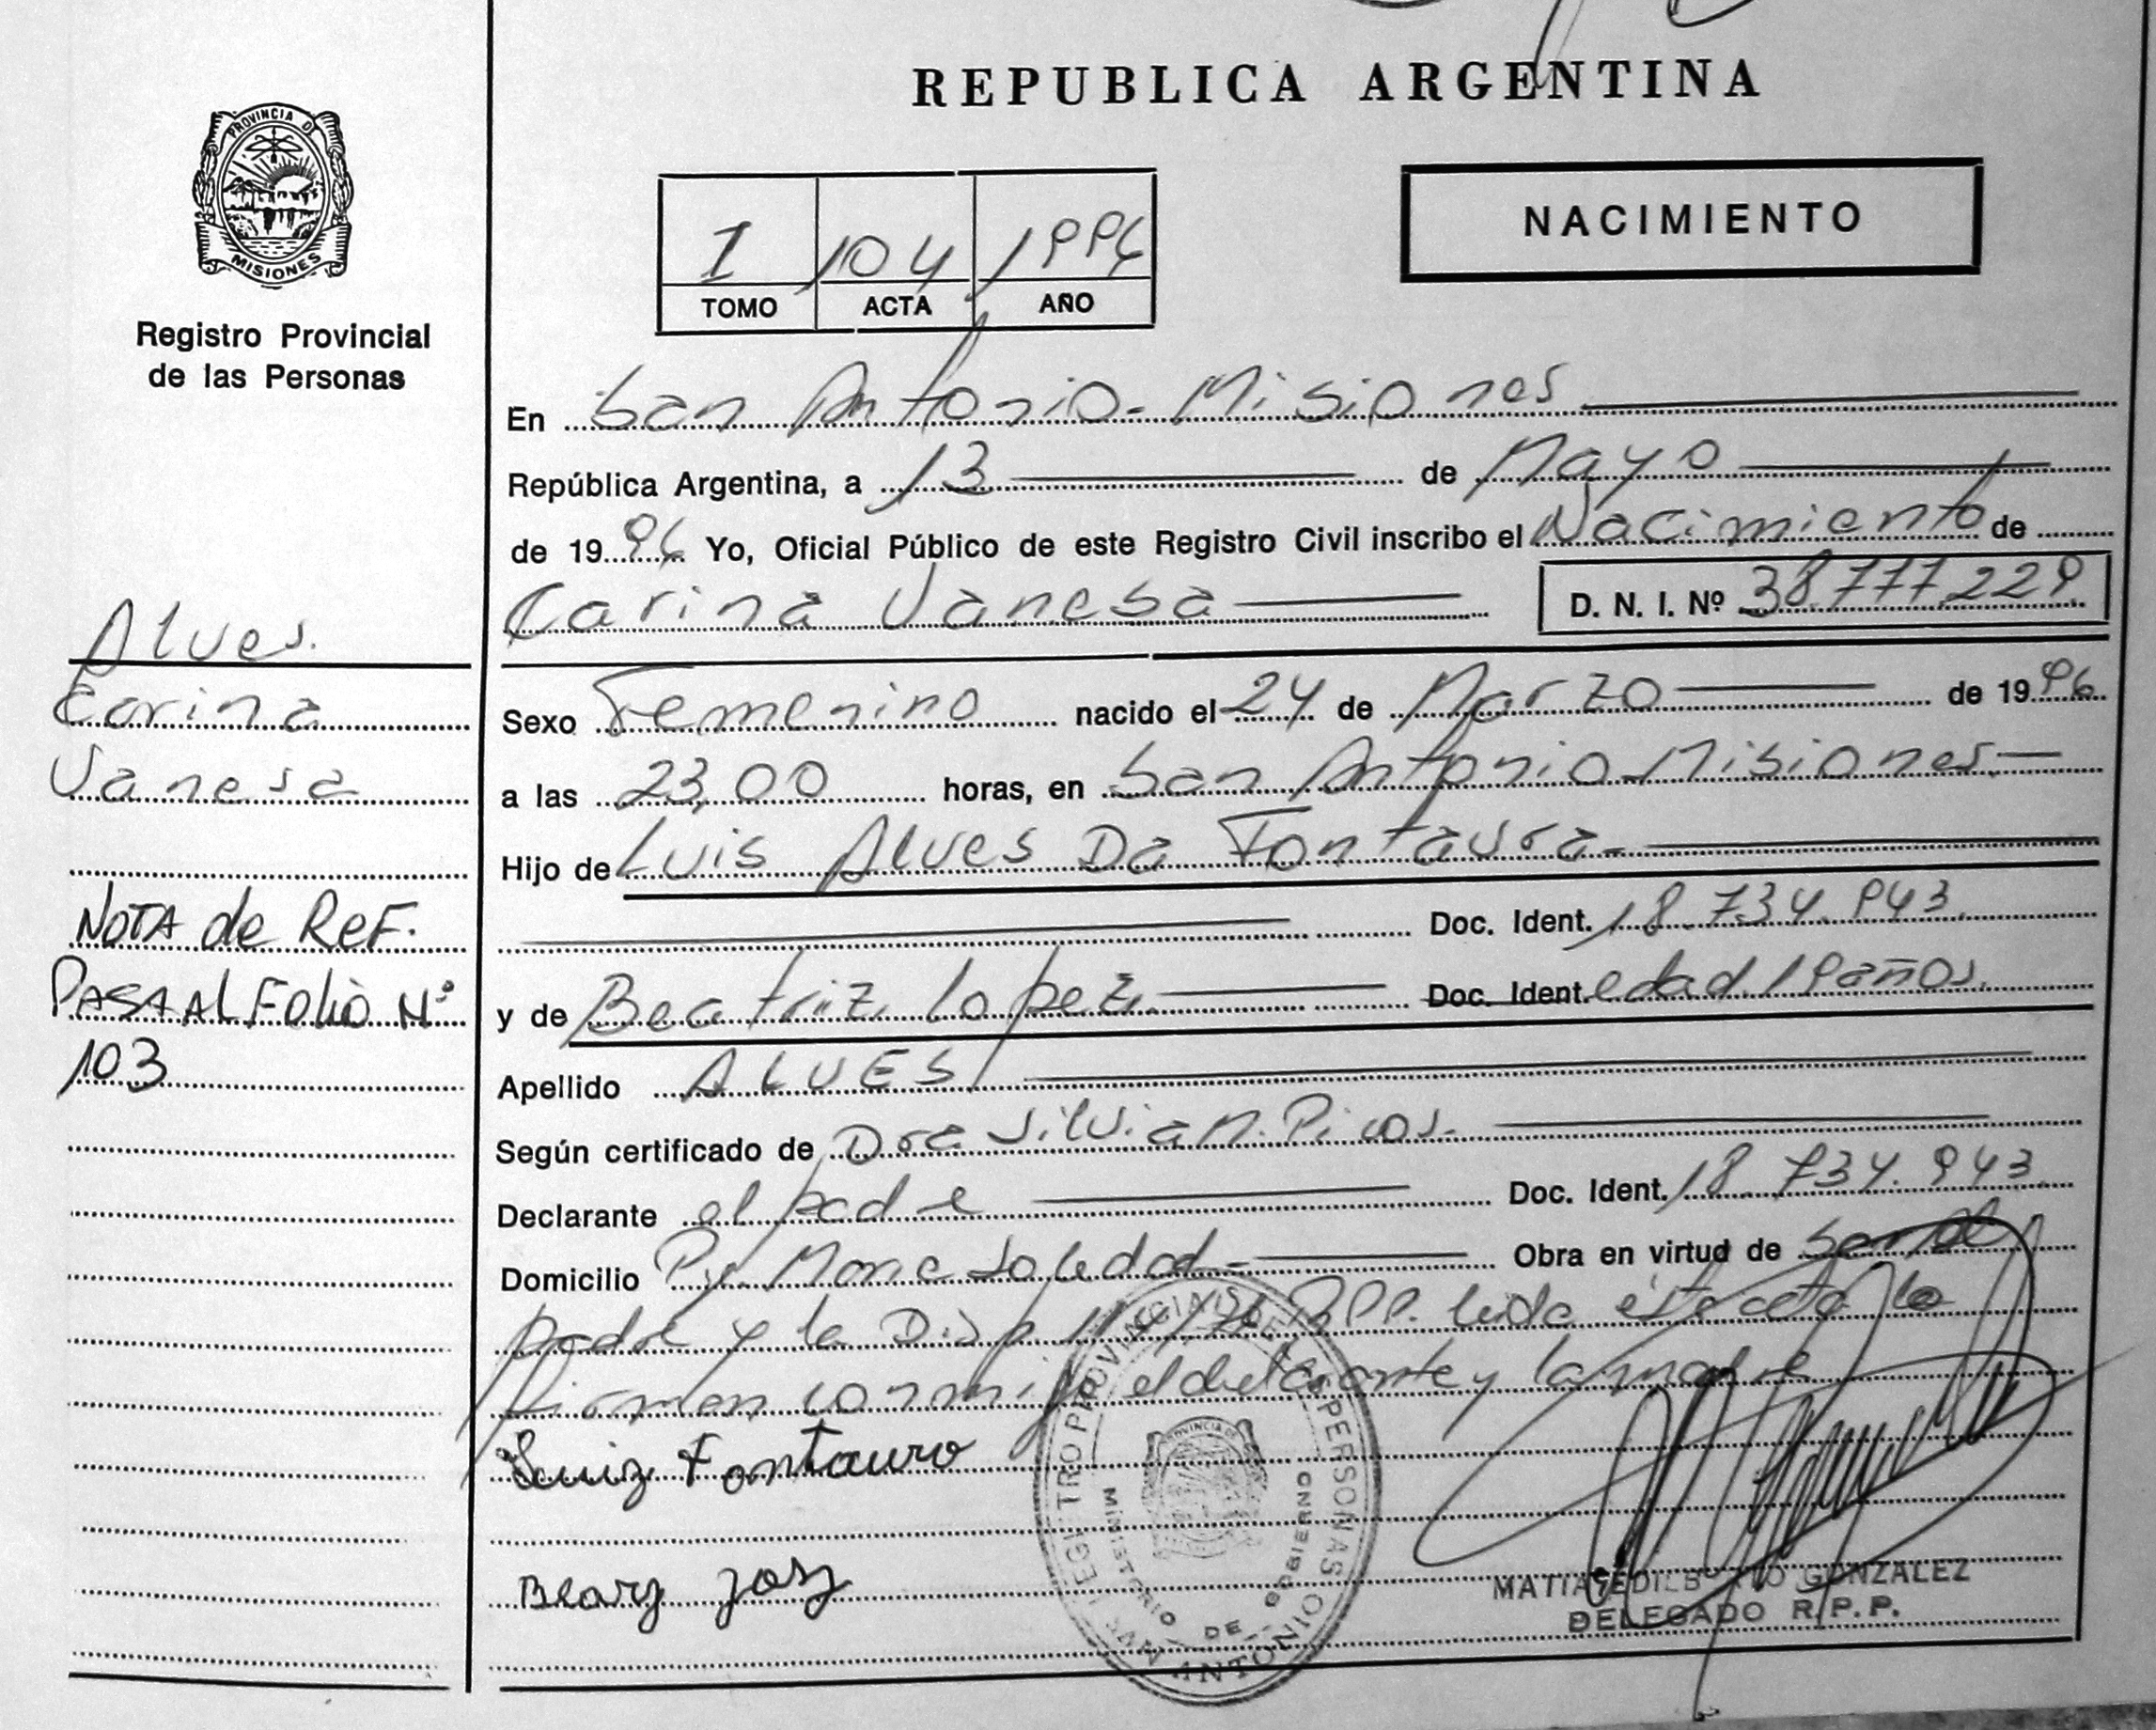 REPUBLICA ARGENTINA
PROVINCIA D
MISIONES
Registro Provincial
de las Personas
I 104 1996
TOMO ACTA AÑO
NACIMIENTO
En San Antonio - Misiones
República Argentina, a 13 de Mayo
de 1996 Yo, Oficial Público de este Registro Civil inscribo el Nacimiento de
Carina Vanesa D. N. I. Nº 38.777.229
Alves.
Carina
Vanesa
Sexo Femenino nacido el 24 de Marzo de 1996
a las 23,00 horas, en San Antonio - Misiones.
Hijo de Luis Alves Da Fontaura
Doc. Ident. 18.734.943
y de Beatriz Lopez Doc. Ident. edad 19 años.
NOTA de ReF.
PASA AL Folio Nº
103
Apellido ALVES
Según certificado de Dra Silvia N. Picos.
Declarante el padre Doc. Ident. 18.734.943
Domicilio Pje Mone Soledad Obra en virtud de ser el
padre y la Disp. R.P.P. leida esta acta la
firman conmigo el declarante y la madre
Luiz Fontauro
MINISTERIO DE GOBIERNO
SAN ANTONIO
MATIAS EDILBERTO GONZALEZ
DELEGADO R.P.P.